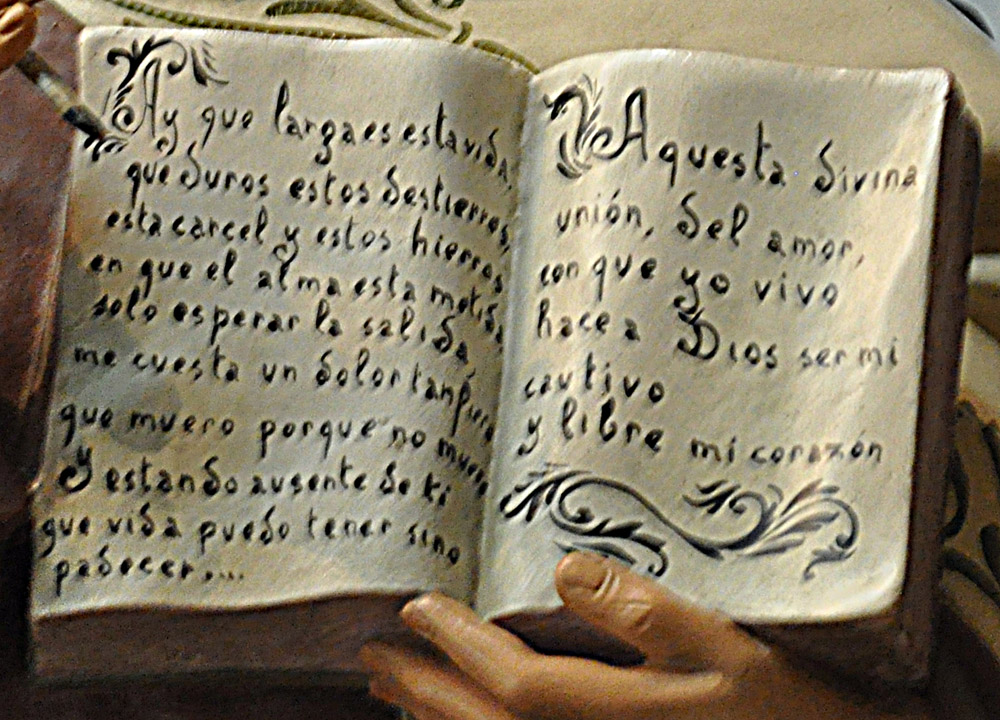 Ay que larga es esta vida,
que duros estos destierros,
esta carcel y estos hierros
en que el alma esta metida
solo esperar la salida
me cuesta un dolor tan fiero
que muero porque no muero
Y estando ausente de ti
que vida puedo tener sino
padecer....
Aquesta divina
unión, del amor,
con que yo vivo
hace a Dios ser mi
cautivo
y libre mi corazón